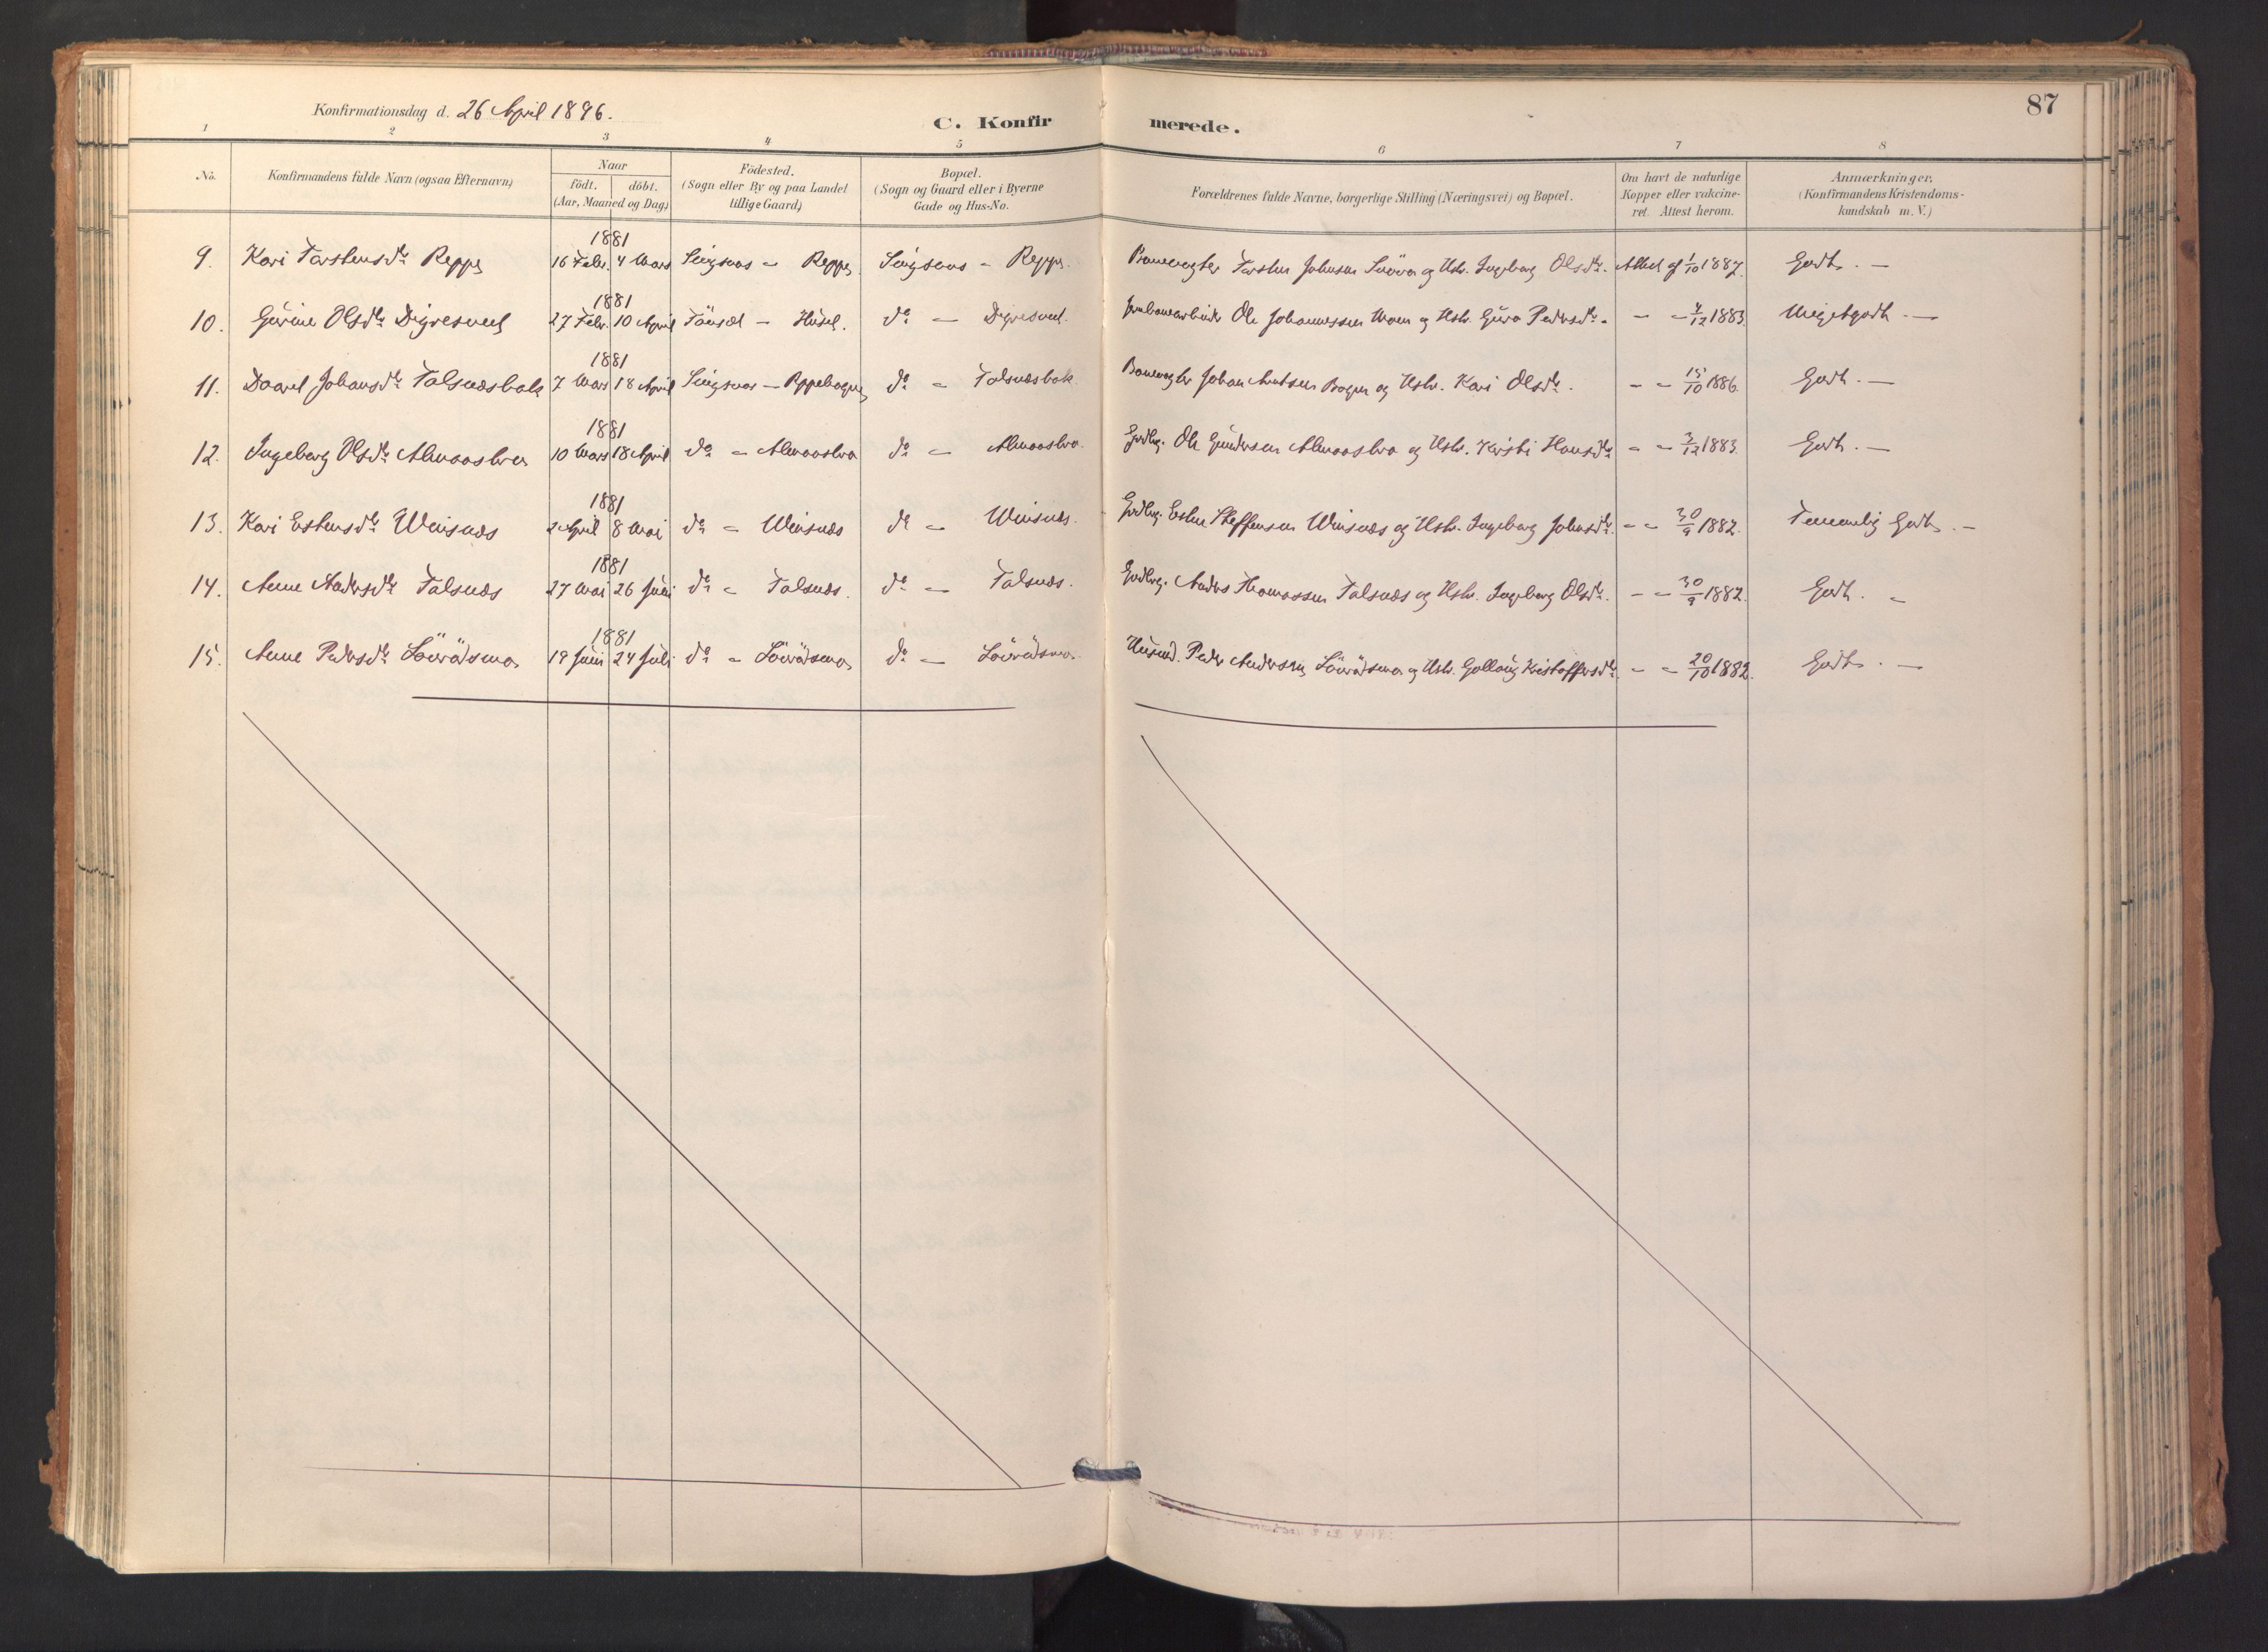 87
Konfirmationsdag d. 26 April 1896.
C. Konfirmerede.
1 2 3 4 5 6 7 8
No.
Konfirmandens fulde Navn (ogsaa Efternavn)
Naar
födt. döbt.
(Aar, Maaned og Dag)
Födested.
(Sogn eller By og paa Landet
tillige Gaard)
Bopæl.
(Sogn og Gaard eller i Byerne
Gade og Hus-No.
Forældrenes fulde Navne, borgerlige Stilling (Næringsvei) og Bopæl.
Om havt de naturlige
Kopper eller vakcine-
ret. Attest herom.
Anmærkninger.
(Konfirmandens Kristendoms-
kundskab m. V.)
1881
9. Kari Torstensdtr Reppe 16 Febr. 4 Mars Singsaas - Reppe Singsaas - Reppe. Banevogter Torsten Johnsen og Hstr. Ingeborg Olsdtr. Attest af 1/10 1887. Godt. -
1881
10. Gurine Olsdtr Digresveet 27 Febr. 10 April Tönset - Husel. do - Digresveet. Jernbanearbeider Ole Johannessen Moen og Hstr. Guro Pedersdtr. - - 4/12 1883. Megetgodt. -
1881
11. Daaret Johansdtr Talsnæsbak 7 Mars 18 April Singsaas - do - Talsnæsbak. Banevogter Johan Arntsen Bogen og Hstr. Kari Olsdtr. - - 15/10 1886. Godt. -
1881
12. Ingeborg Olsdtr Almaasbro 10 Mars 18 April do - Almaasbro do - Almaasbro. Grdbrg. Ole Gundersen Almaasbro og Hstr. Kirsti Hansdtr - - 3/12 1883. Godt. -
1881
13. Kari Estensdtr Winsnæs 2 April 8 Mai do - Winsnæs do - Winsnæs. Grdbrg. Esten Steffensen Winsnæs og Hstr. Ingeborg Johnsdtr. - - 30/9 1882. Temmelig Godt. -
1881
14. Anne Andersdtr Talsnæs 27 Mai 26 Juni do - Talsnæs. do - Talsnæs. Grdbrg. Anders Thomassen Talsnæs og Hstr. Ingeborg Olsdtr. - - 30/9 1882. Godt. -
1881
15. Anne Pedersdtr 19 Juni 24 Juli do - do - Husmd. Peder Andersen og Hstr. Gollaug Kristoffersdtr. - - 20/10 1882. Godt. -